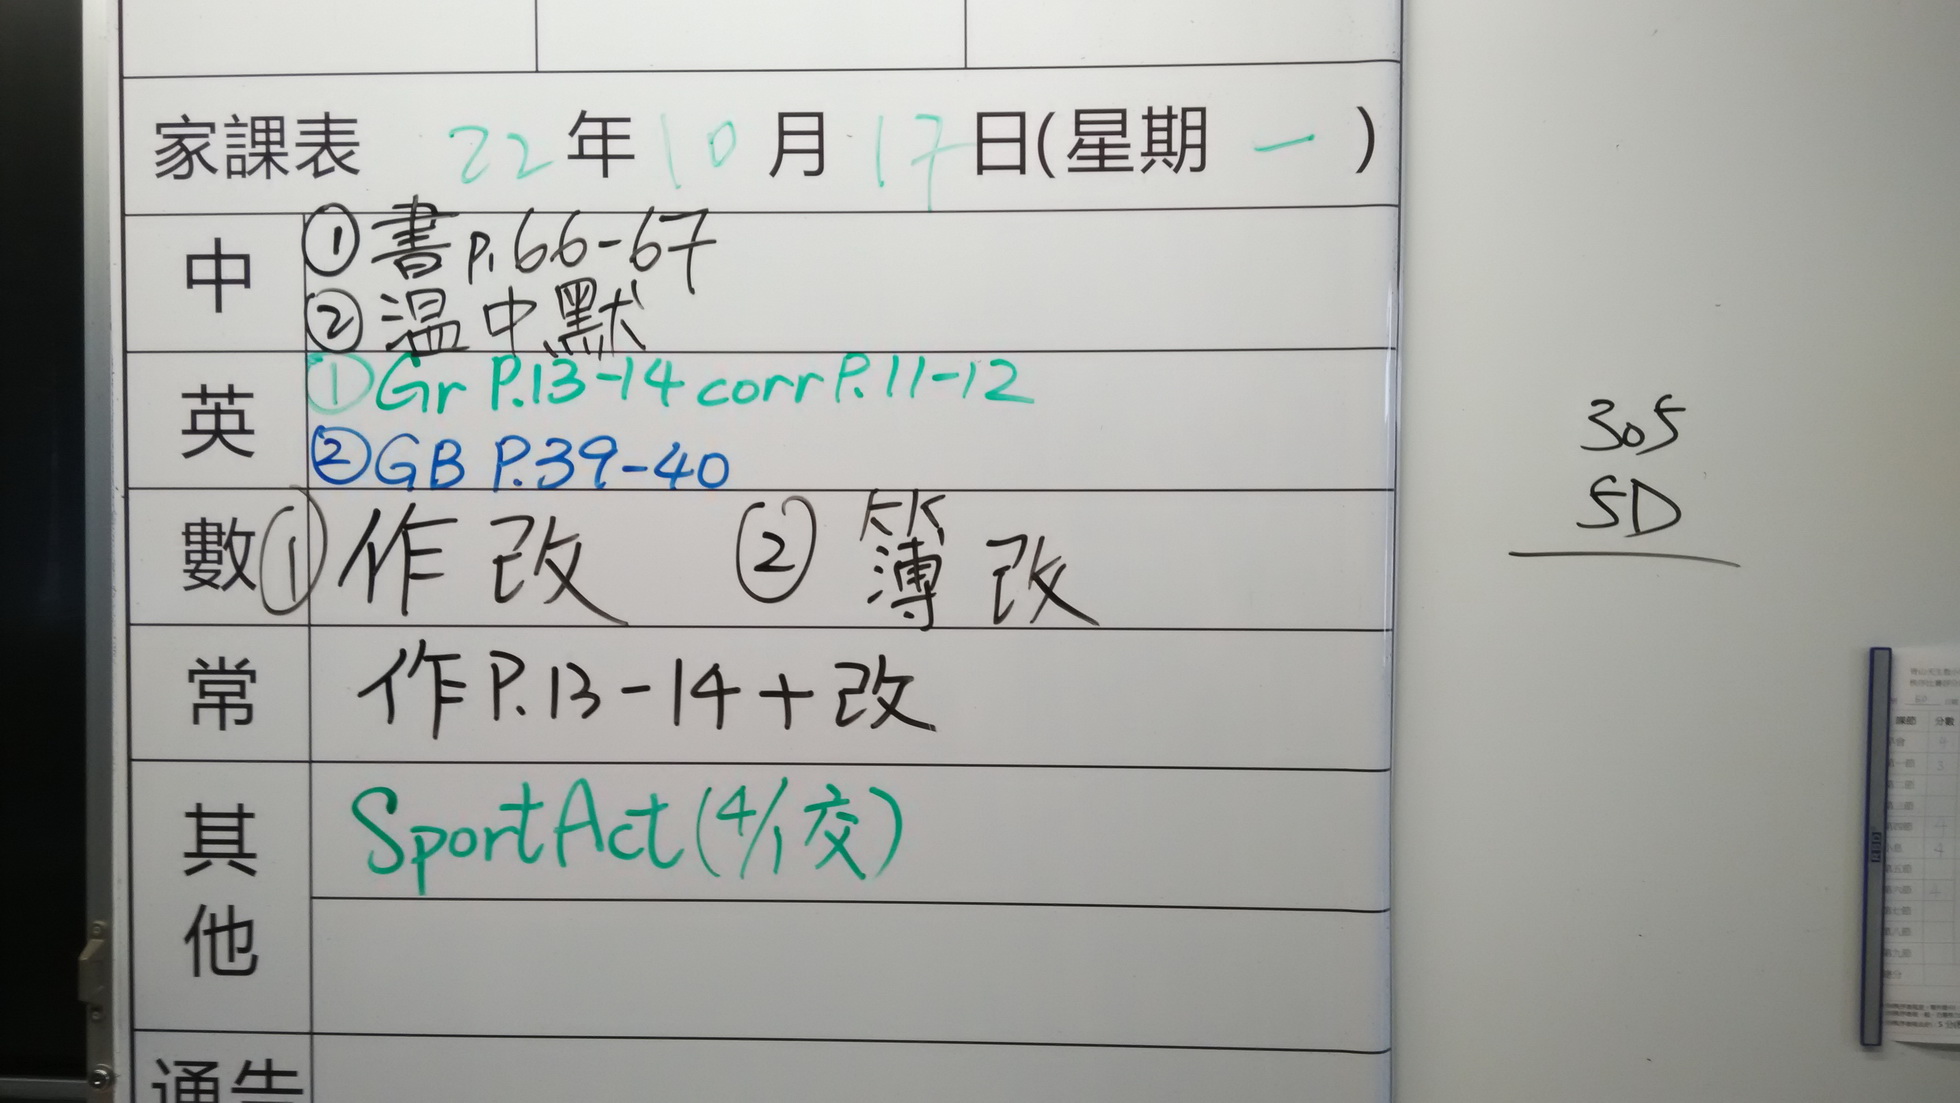 家課表 22年10月17日(星期一)
中
①書p.66-67
②溫中默
英
①Gr P.13-14 corr P.11-12
②GB P.39-40
數 ①作改 ②簿改
常 作P.13-14+改
其他
Sport Act (4/1交)
通告
305
5D
課節 分數